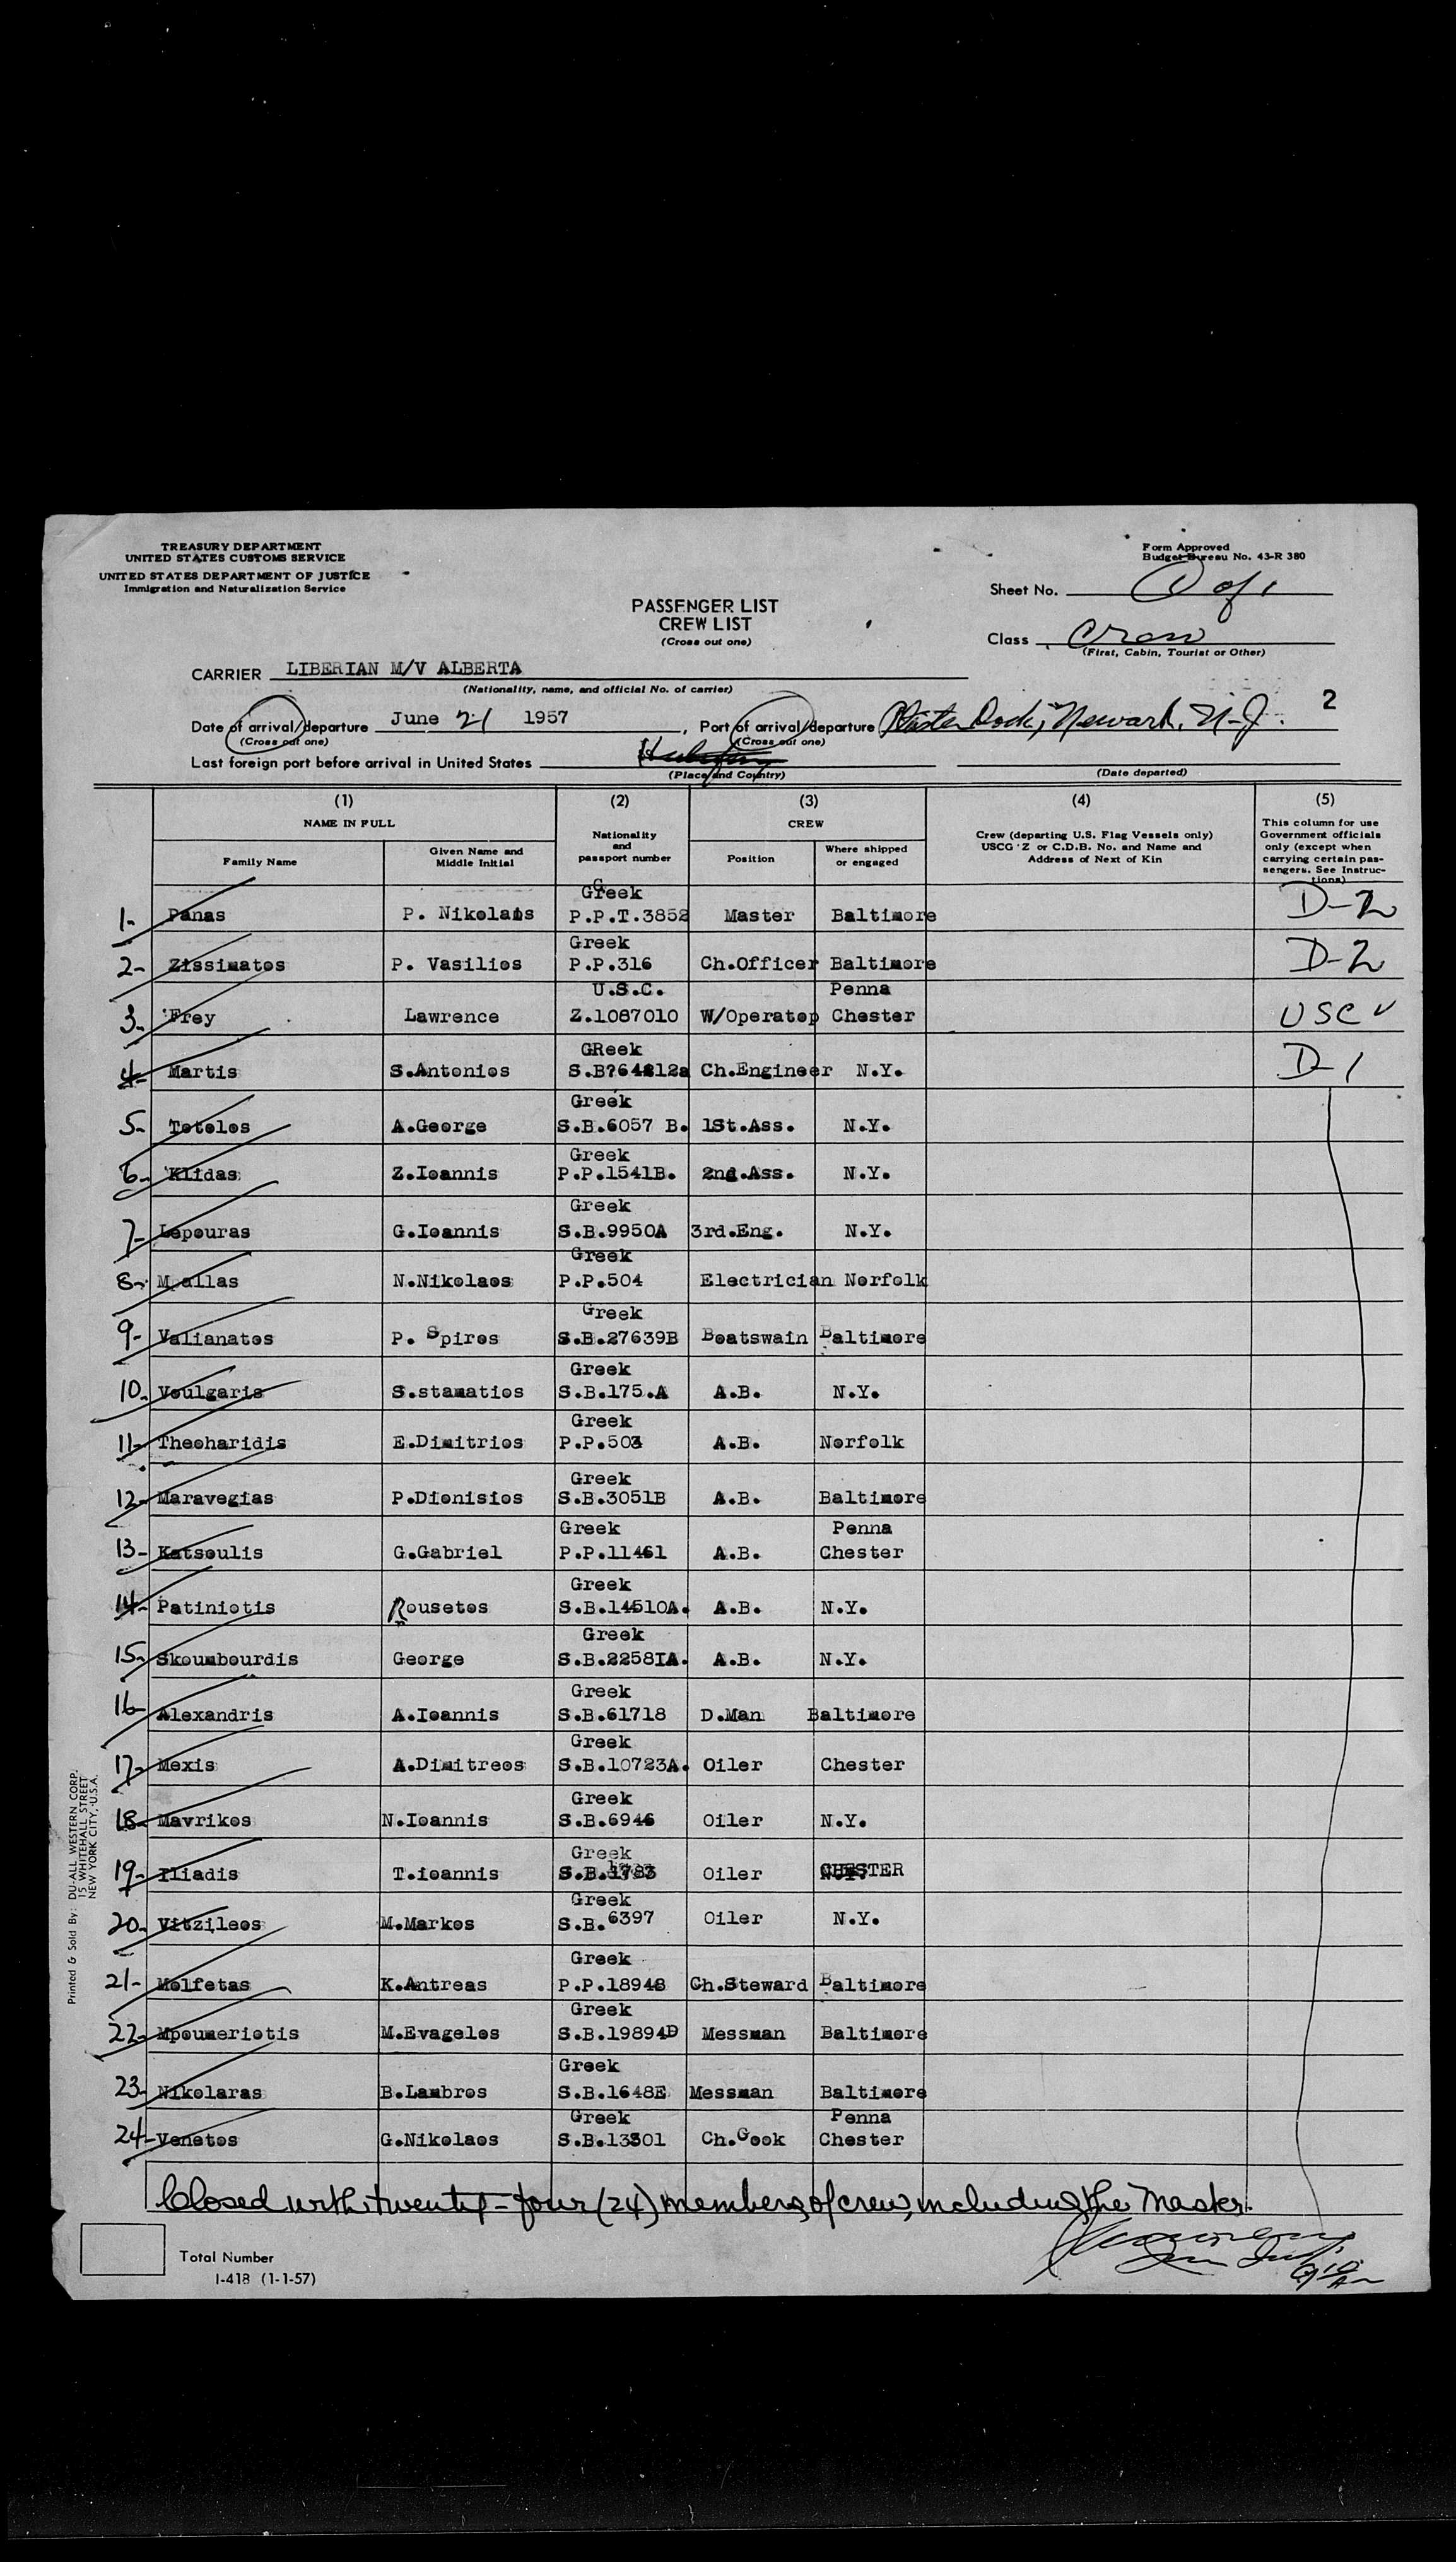 TREASURY DEPARTMENT
UNITED STATES CUSTOMS SERVICE
UNITED STATES DEPARTMENT OF JUSTICE
Immigration and Naturalization Service
Form Approved
Budget Bureau No. 43-R 380
Sheet No. 1 of 1
PASSENGER LIST
CREW LIST
(Cross out one)
Class Crew
(First, Cabin, Tourist or Other)
CARRIER LIBERIAN M/V ALBERTA
(Nationality, name, and official No. of carrier)
2
Date of arrival/departure June 21 1957, Port of arrival/departure Dock, Newark, N-J.
(Cross out one) (Cross out one)
Last foreign port before arrival in United States
(Place and Country) (Date departed)
(1) (2) (3) (4) (5)
NAME IN FULL Nationality and passport number CREW Crew (departing U.S. Flag Vessels only) USCG Z or C.D.B. No. and Name and Address of Next of Kin This column for use Government officials only (except when carrying certain passengers. See Instructions)
Family Name Given Name and Middle Initial Position Where shipped or engaged
Greek
1- Panas P. Nikolais P.P.T.3852 Master Baltimore D-2
Greek
2- Zissimatos P. Vasilios P.P.316 Ch.Officer Baltimore D-2
U.S.C. Penna
3- Frey Lawrence Z.1087010 W/Operator Chester USC ✓
GReek
4- Martis S.Antonios Ch.Engineer N.Y. D-1
Greek
5- Toteles A.George S.B.6057 B. 1St.Ass. N.Y.
Greek
6- Klidas Z.Ioannis P.P.1541B. 2nd.Ass. N.Y.
Greek
7- Lepouras G.Ioannis S.B.9950A 3rd.Eng. N.Y.
Greek
8- Mpallas N.Nikolaos P.P.504 Electrician Norfolk
Greek
9- Valianatos P. Spiros S.B.27639B Boatswain Baltimore
Greek
10- Voulgaris S.stamatios S.B.175.A A.B. N.Y.
Greek
11- Theoharidis E.Dimitrios P.P.503 A.B. Norfolk
Greek
12- Maravegias P.Dionisios S.B.3051B A.B. Baltimore
Greek Penna
13- Katsoulis G.Gabriel P.P.11461 A.B. Chester
Greek
14- Patiniotis Rousetos S.B.14510A. A.B. N.Y.
Greek
15- Skoumbourdis George S.B.2258IA. A.B. N.Y.
Greek
16- Alexandris A.Ioannis S.B.61718 D.Man Baltimore
Greek
17- Mexis A.Dimitreos S.B.10723A. Oiler Chester
Greek
18- Mavrikos N.Ioannis S.B.6946 Oiler N.Y.
Greek
19- Iliadis T.ioannis Oiler CHESTER
Greek
20- Vitzileos M.Markos S.B.6397 Oiler N.Y.
Greek
21- Molfetas K.Antreas P.P.18948 Ch.Steward Baltimore
Greek
22- Mpoumeriotis M.Evagelos S.B.19894D Messman Baltimore
Greek
23- Nikolaras B.Lambros S.B.1648E Messman Baltimore
Greek Penna
24- Venetos G.Nikolaos S.B.13301 Ch.Cook Chester
Closed with twenty-four (24) members of crew, including the Master.
Total Number
I-418 (1-1-57)
Printed & Sold By: DU-ALL WESTERN CORP.
15 WHITEHALL STREET
NEW YORK CITY, U.S.A.